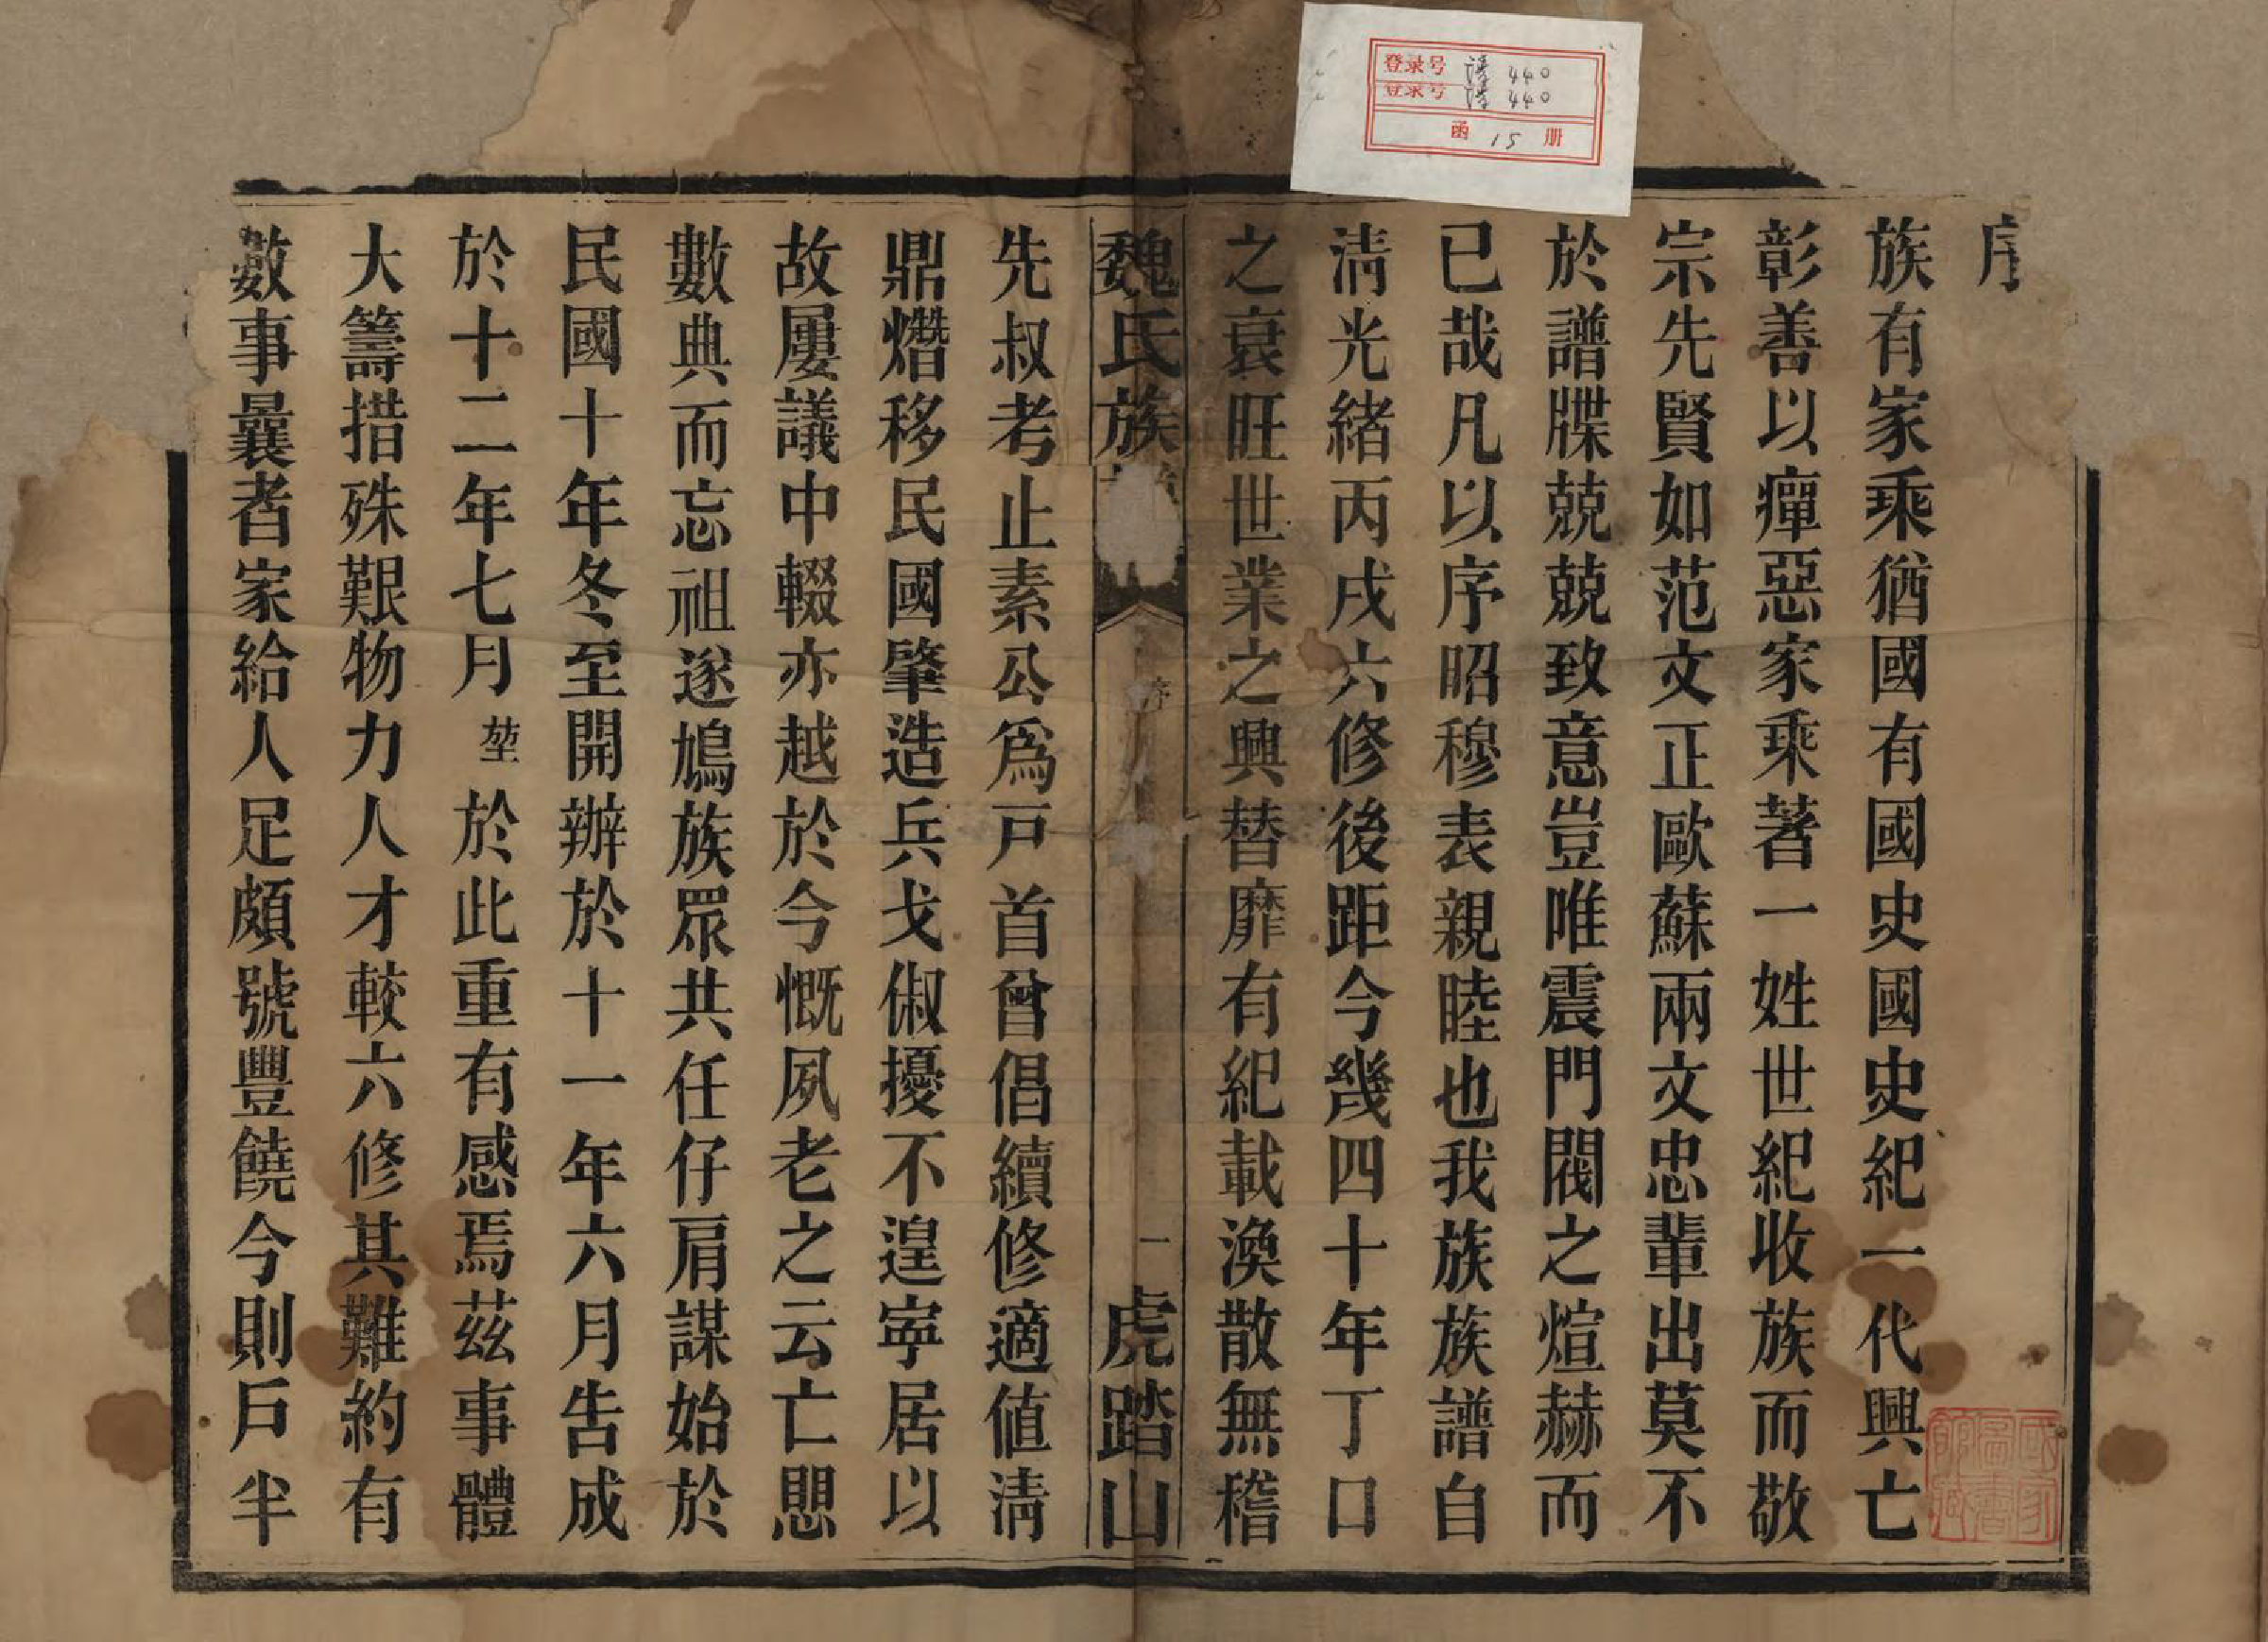 登录号 谱 440
登录号 谱 440
函 15 册
序
族有家乘猶國有國史國史紀一代興亡
彰善以癉惡家乘著一姓世紀收族而敬
宗先賢如范文正歐蘇兩文忠輩出莫不
於譜牒兢兢致意豈唯震門閥之煊赫而
已哉凡以序昭穆表親睦也我族族譜自
淸光緖丙戌六修後距今幾四十年丁口
之衰旺世業之興替靡有紀載渙散無稽
魏氏族 序 一 虎踏山
先叔考止素公爲戸首曾倡續修適値淸
鼎熸移民國肇造兵戈俶擾不遑寧居以
故屢議中輟亦越於今慨夙老之云亡思
數典而忘祖遂鳩族眾共任仔肩謀始於
民國十年冬至開辦於十一年六月告成
於十二年七月堃於此重有感焉茲事體
大籌措殊艱物力人才較六修其難約有
數事曩者家給人足頗號豐饒今則戶半
國家圖書館藏